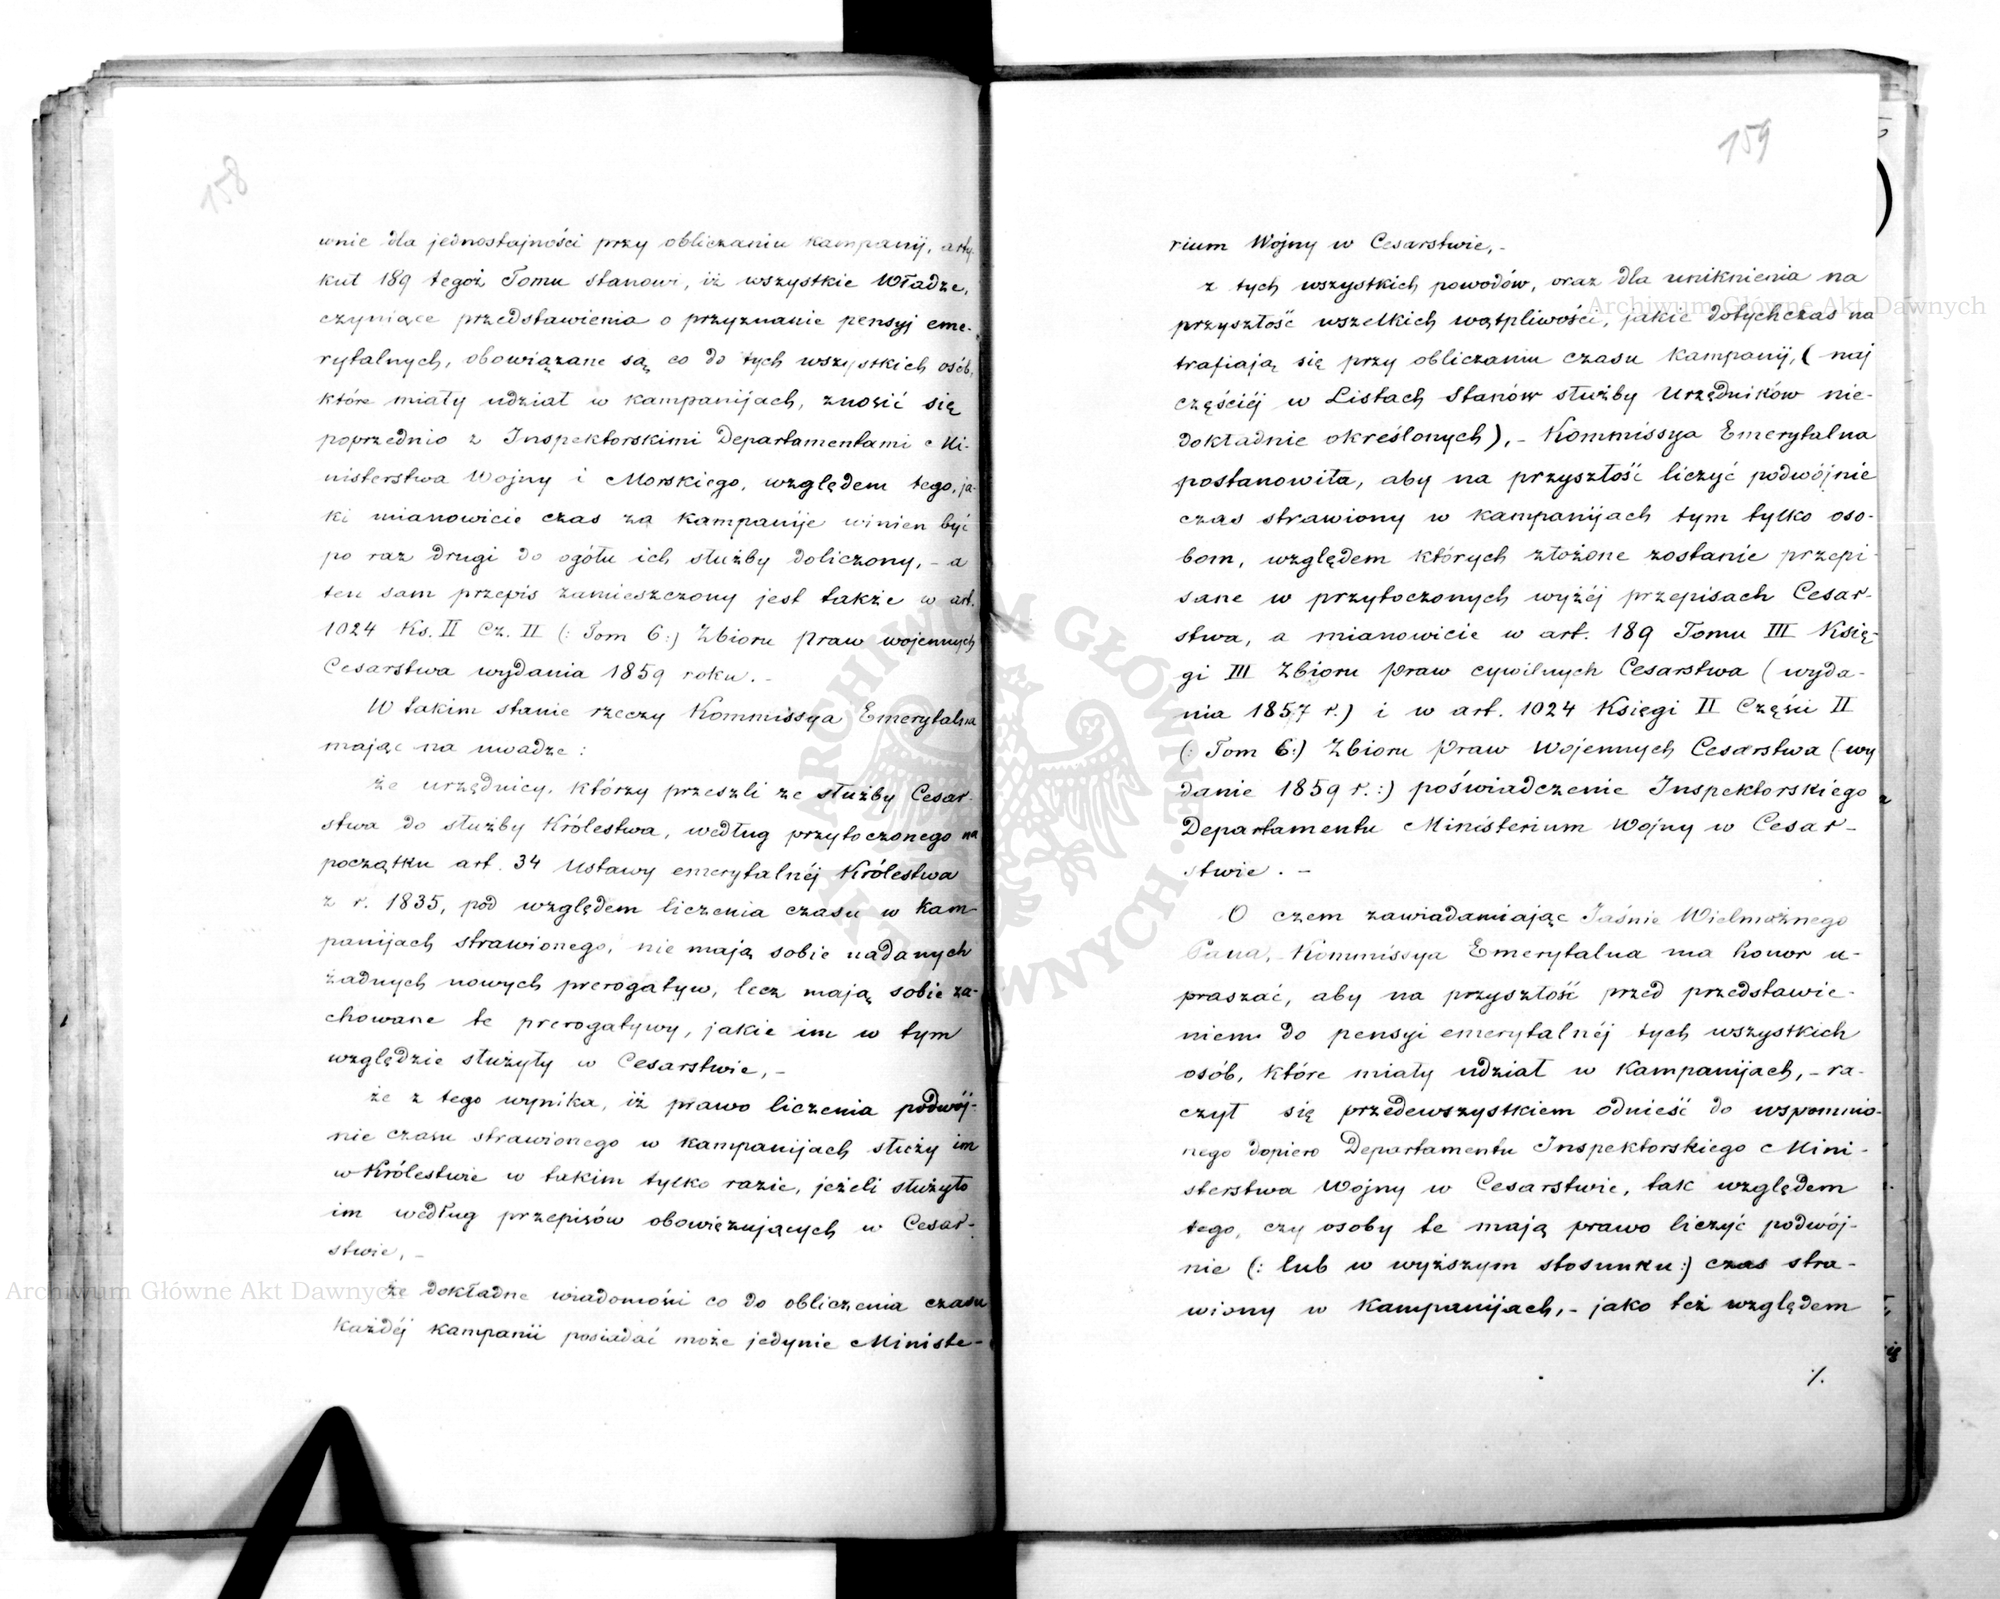 158
wnie dla jednostajności przy obliczaniu kampanij, arty-
kuł 189 tegoż Tomu stanowi, iż wszystkie Władze,
czyniące przedstawienia o przyznanie pensyj eme-
rytalnych, obowiązane są, co do tych wszystkich osób,
które miały udział w kampanijach, znosić się
poprzednio z Inspektorskimi Departamentami Mi-
nisterstwa Wojny i Morskiego, względem tego, ja-
ki mianowicie czas za kampanije winien być
po raz drugi do ogółu ich służby doliczony, - a
ten sam przepis zamieszczony jest także w art.
1024 Ks. II Cz. II (: Tom 6:) Zbioru praw wojennych
Cesarstwa wydania 1859 roku. -
W takim stanie rzeczy Kommissya Emerytalna
mając na uwadze:
że urzędnicy, którzy przeszli ze służby Cesar-
stwa do służby Królestwa, według przytoczonego na
początku art. 34 Ustawy emerytalnéj Królestwa
z r. 1835, pod względem liczenia czasu w kam-
panijach strawionego, nie mają sobie nadanych
żadnych nowych prerogatyw, lecz mają sobie za-
chowane te prerogatywy, jakie im w tym
względzie służyły w Cesarstwie, -
że z tego wynika, iż prawo liczenia podwój-
nie czasu strawionego w kampanijach służy im
w Królestwie w takim tylko razie, jeżeli służyło
im według przepisów obowięzujących w Cesar-
stwie, -
że dokładne wiadomości co do obliczenia czasu
każdéj kampanii posiadać może jedynie Ministe-
159
rium Wojny w Cesarstwie, -
z tych wszystkich powodów, oraz dla uniknienia na
przyszłość wszelkich wątpliwości, jakie dotychczas na
trafiają się przy obliczaniu czasu kampanij, ( naj
częściéj w Listach Stanów służby Urzędników nie-
dokładnie określonych), - Kommissya Emerytalna
postanowiła, aby na przyszłość liczyć podwójnie
czas strawiony w kampanijach tym tylko oso-
bom, względem których złożone zostanie przepi
sane w przytoczonych wyżéj przepisach Cesar-
stwa, a mianowicie w art. 189 Tomu III Księ-
gi III Zbioru praw cywilnych Cesarstwa (wyda-
nia 1857 r.) i w art. 1024 Księgi II Części II
(: Tom 6:) Zbioru Praw Wojennych Cesarstwa (wy
danie 1859 r.:) poświadczenie Inspektorskiego
Departamentu Ministerium Wojny w Cesar-
stwie. -
O czem zawiadamiając Jaśnie Wielmożnego
Pana, Kommissya Emerytalna ma honor u-
praszać, aby na przyszłość przed przedstawie-
niem do pensyi emerytalnéj tych wszystkich
osób, które miały udział w Kampanijach, - ra-
czył się przedewszystkiem odnieść do wspomnio-
nego dopiero Departamentu Inspektorskiego Mini-
sterstwa Wojny w Cesarstwie, tak względem
tego, czy osoby te mają prawo liczyć podwój-
nie (: lub w wyższym stosunku:) czas stra-
wiony w kampanijach, - jako też względem
./.
Archiwum Główne Akt Dawnych
Archiwum Główne Akt Dawnych
ARCHIWUM GŁÓWNE AKT DAWNYCH